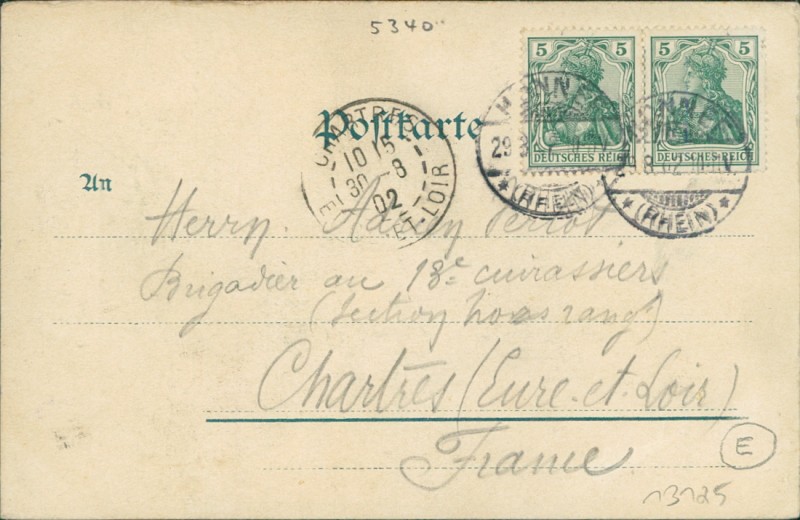 5340
5 5 5 5
DEUTSCHES REICH DEUTSCHES REICH
HONNEF
29.8
(RHEIN)
HONNEF
8.02
(RHEIN)
Postkarte
CHARTRES
10 15
30-8
02
ET-LOIR
An
Herrn
Brigadier au 18e cuirassiers
(Section hors rang)
Chartrès (Eure-et-Loir)
France
E
13125